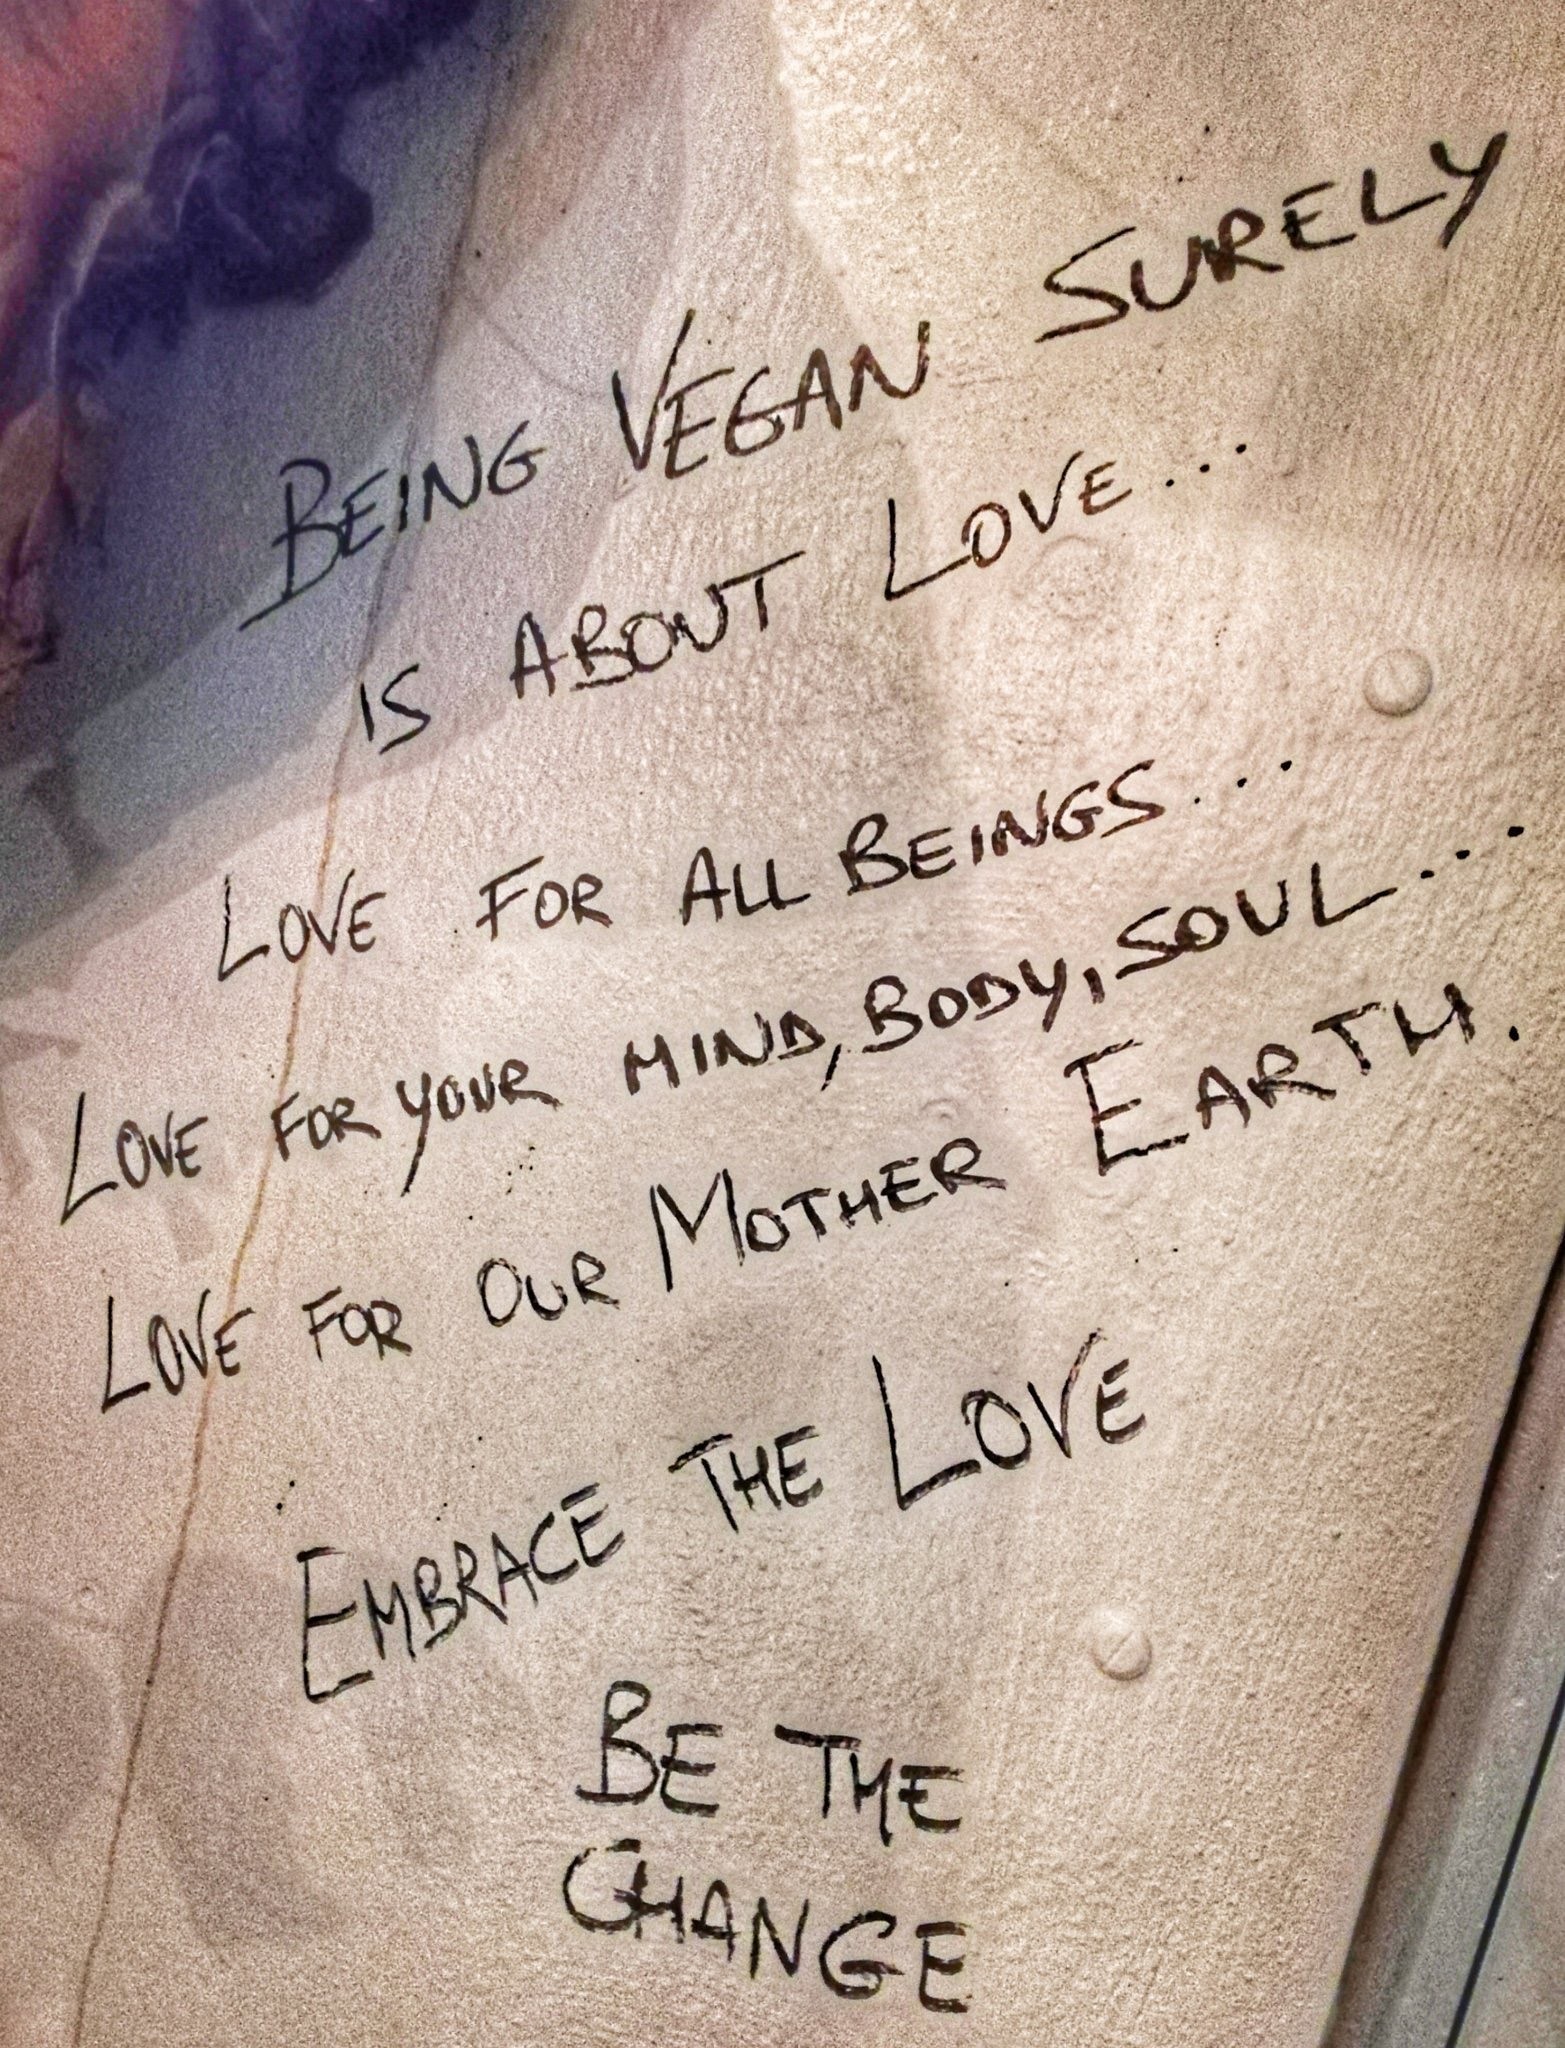 BEING VEGAN SURELY
IS ABOUT LOVE...
LOVE FOR ALL BEINGS...
LOVE FOR YOUR MIND, BODY, SOUL...
LOVE FOR OUR MOTHER EARTH.
EMBRACE THE LOVE
BE THE
CHANGE